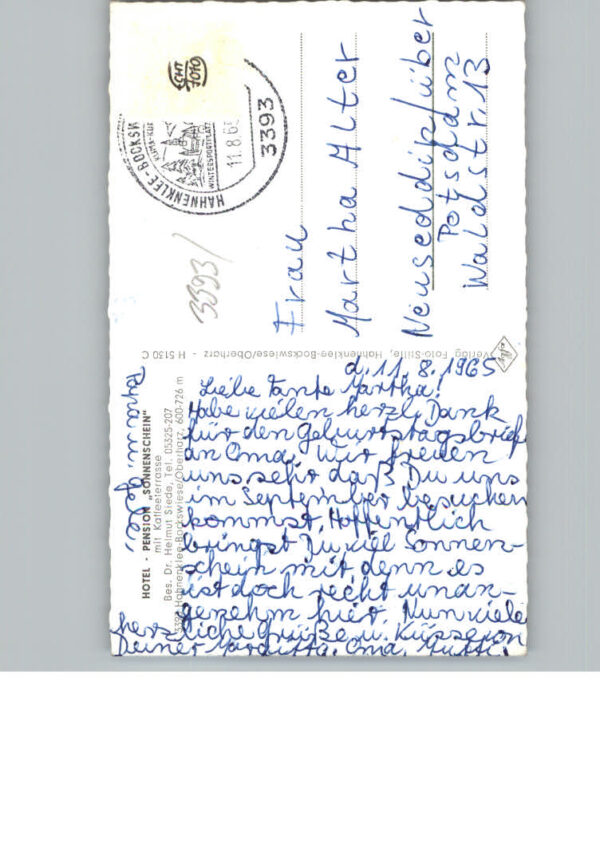 HAHNENKLEE-BOCKSW
WINTERSPORTPLATZ
11.8.65
3393
3393/
Frau
Martha Alter
Neuseddin/über
Potsdam
Waldstr. 13
Verlag Foto-Stille, Hahnenklee-Bockswiese/Oberharz - H 5130 C
HOTEL - PENSION „SONNENSCHEIN"
mit Kaffeeterrasse
Bes. Dr. Helmut Siede, Tel. 05525-207
3392 Hahnenklee-Bockswiese/Oberharz, 600-726 m
d. 11. 8. 1965
Liebe Tante Martha!
Habe vielen herzl. Dank
für den Geburtstagsbrief
an Oma. Wir freuen
uns sehr daß Du uns
im September besuchen
kommst. Hoffentlich
bringst Du viel Sonnen-
schein mit denn es
ist doch recht unan-
genehm hier. Nun viele
herzliche Grüße u. Küsse von
Deiner Oma, Mutti,
Papa u.